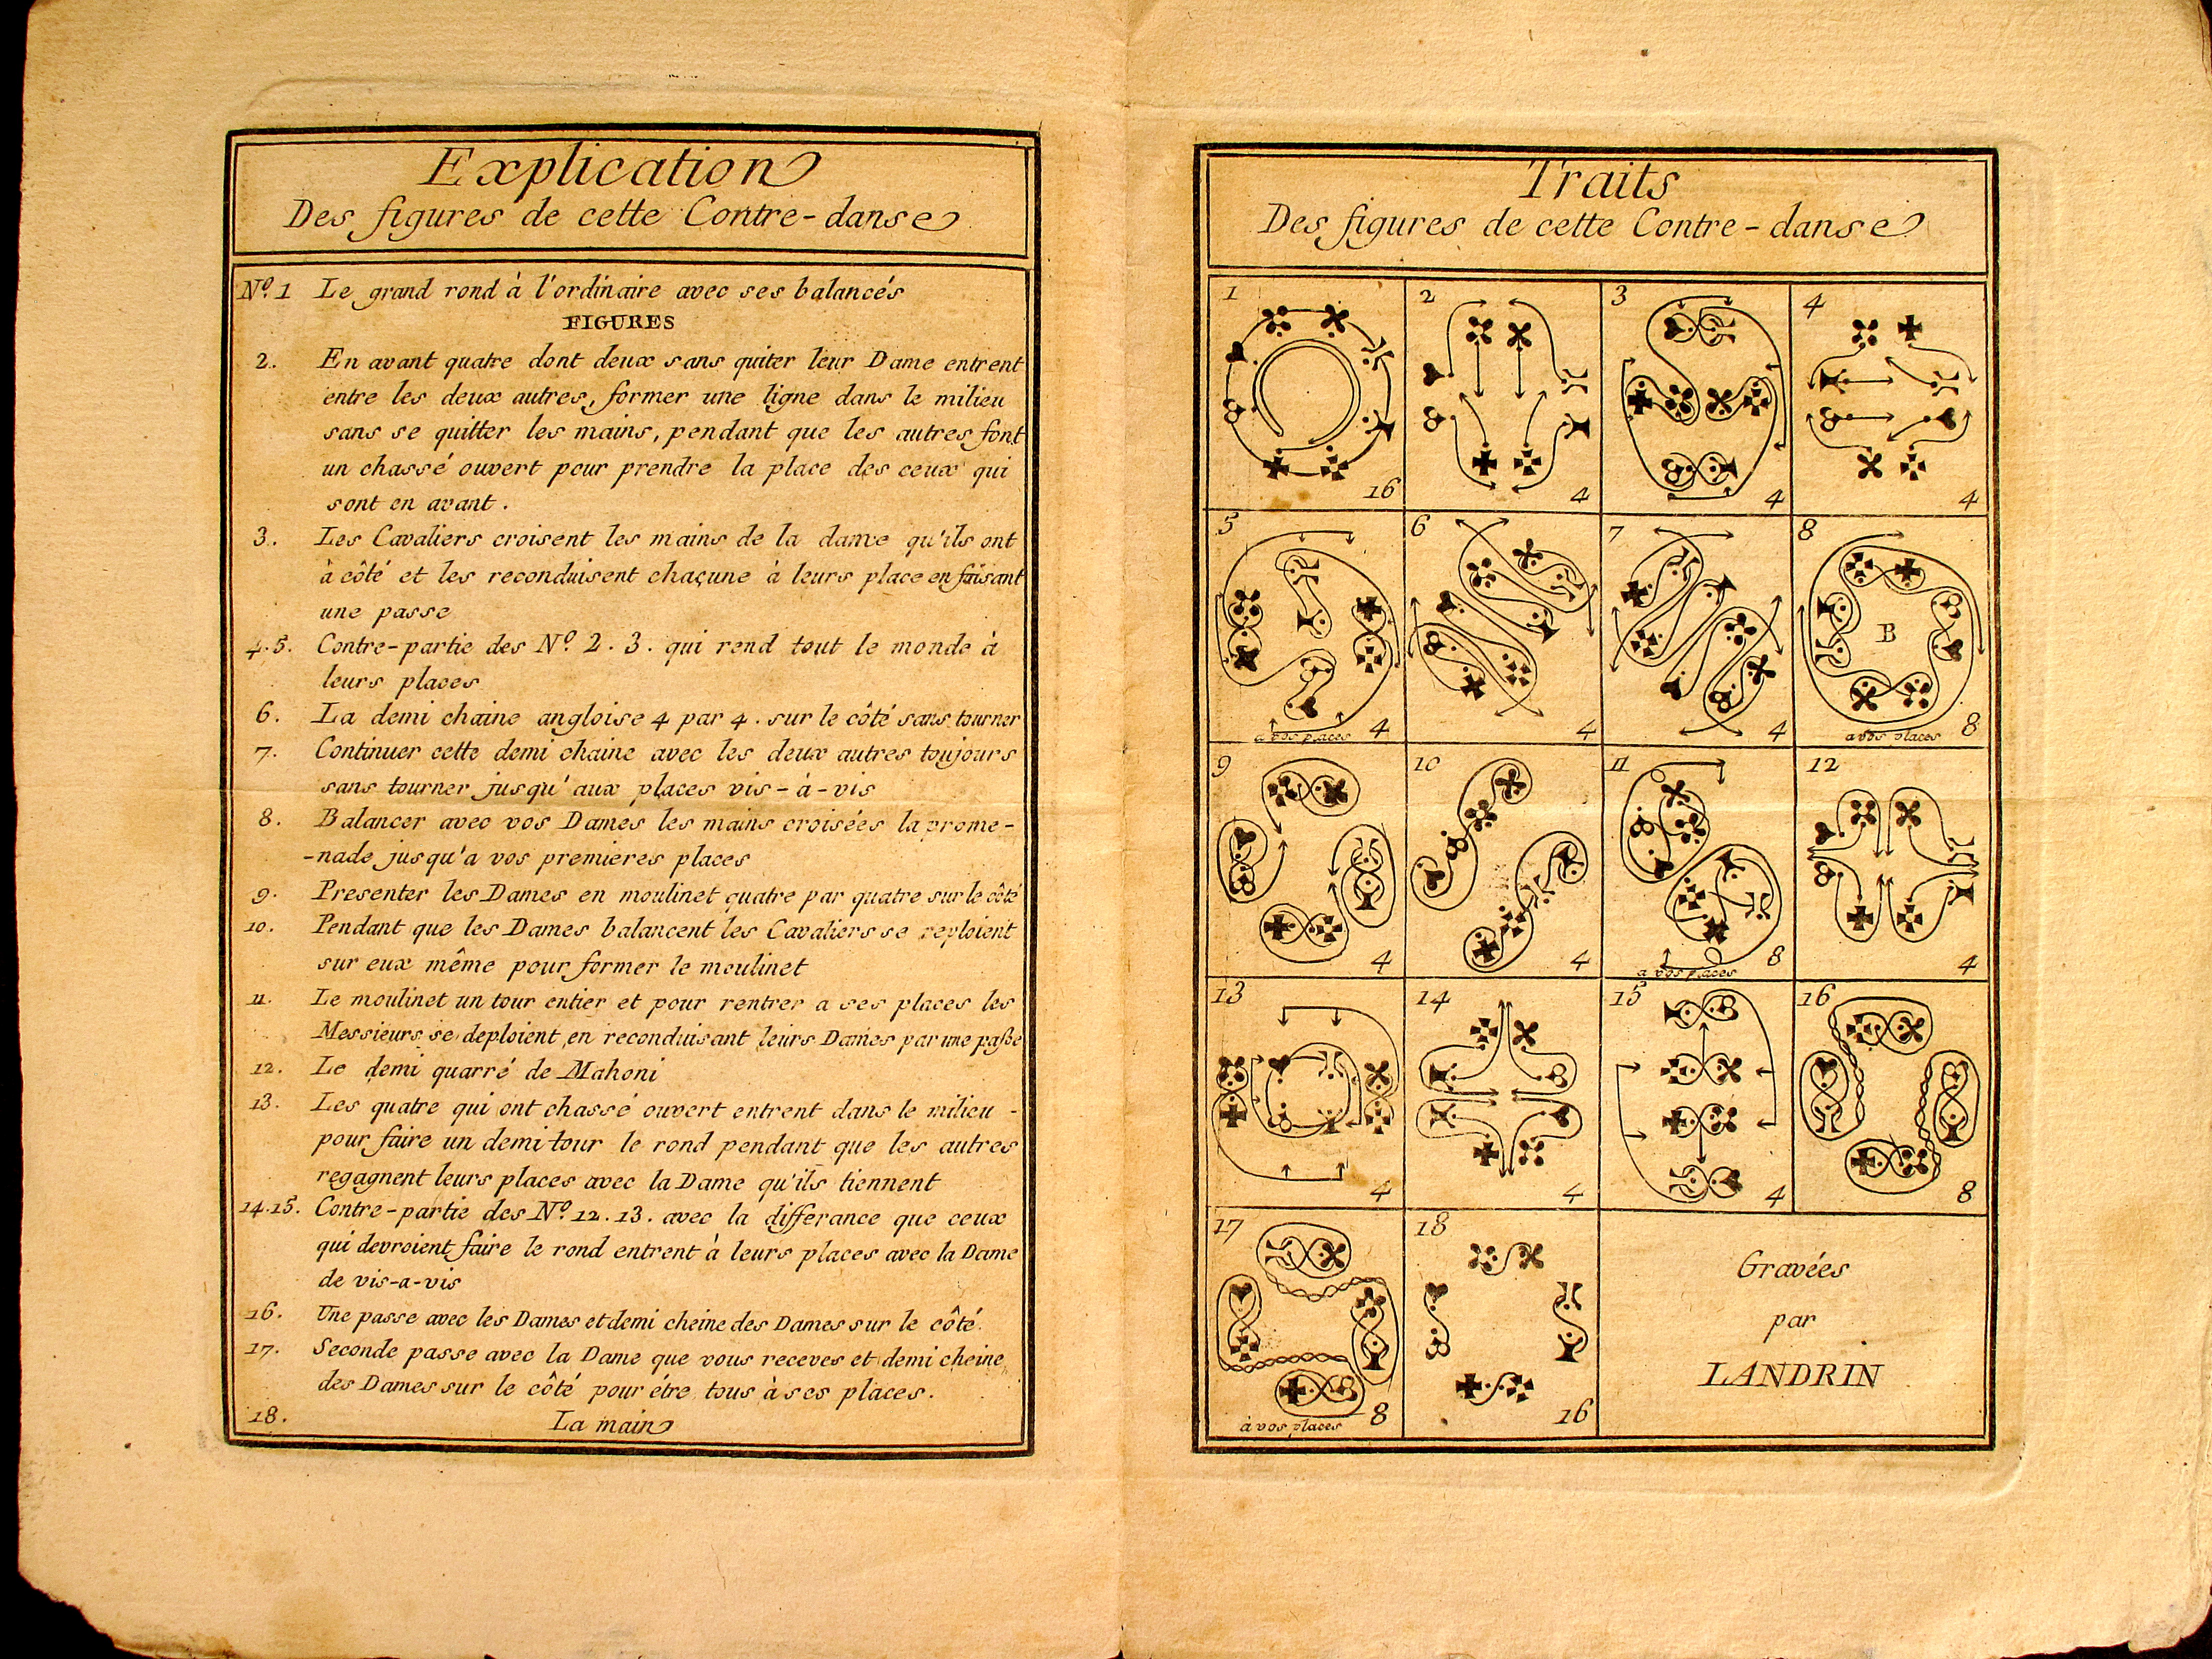 Explication
Des figures de cette Contre-danse
N.º 1 Le grand rond à l'ordinaire avec ses balancés
FIGURES
2. En avant quatre dont deux sans quiter leur Dame entrent
entre les deux autres, former une ligne dans le milieu
sans se quitter les mains, pendant que les autres font
un chassé ouvert pour prendre la place des ceux qui
sont en avant.
3. Les Cavaliers croisent les mains de la dame qu'ils ont
à côté et les reconduisent chaçune à leurs place en faisant
une passe
4.5. Contre-partie des N.º 2.3. qui rend tout le monde à
leurs places
6. La demi chaine angloise 4 par 4. sur le côté sans tourner
7. Continuer cette demi chaine avec les deux autres toujours
sans tourner jusqu'aux places vis-à-vis
8. Balancer avec vos Dames les mains croisées la prome-
-nade jusqu'a vos premieres places
9. Presenter les Dames en moulinet quatre par quatre sur le côté
10. Pendant que les Dames balancent les Cavaliers se reploient
sur eux même pour former le moulinet
11. Le moulinet un tour entier et pour rentrer a ses places les
Messieurs se deploient en reconduisant leurs Dames par une passe
12. Le demi quarré de Mahoni
13. Les quatre qui ont chassé ouvert entrent dans le milieu -
pour faire un demi tour le rond pendant que les autres
regagnent leurs places avec la Dame qu'ils tiennent
14.15. Contre-partie des N.º 12.13. avec la differance que ceux
qui devroient faire le rond entrent à leurs places avec la Dame
de vis-a-vis
16. Une passe avec les Dames et demi cheine des Dames sur le côté.
17. Seconde passe avec la Dame que vous receves et demi cheine
des Dames sur le côté pour étre tous à ses places.
18. La main
Traits
Des figures de cette Contre-danse
1 2 3 4
16 4 4 4
5 6 7 8
B
a vos places 4 4 4 a vos places 8
9 10 11 12
4 4 a vos places 8 4
13 14 15 16
4 4 4 8
17 18
à vos places 8 16
Gravées
par
LANDRIN